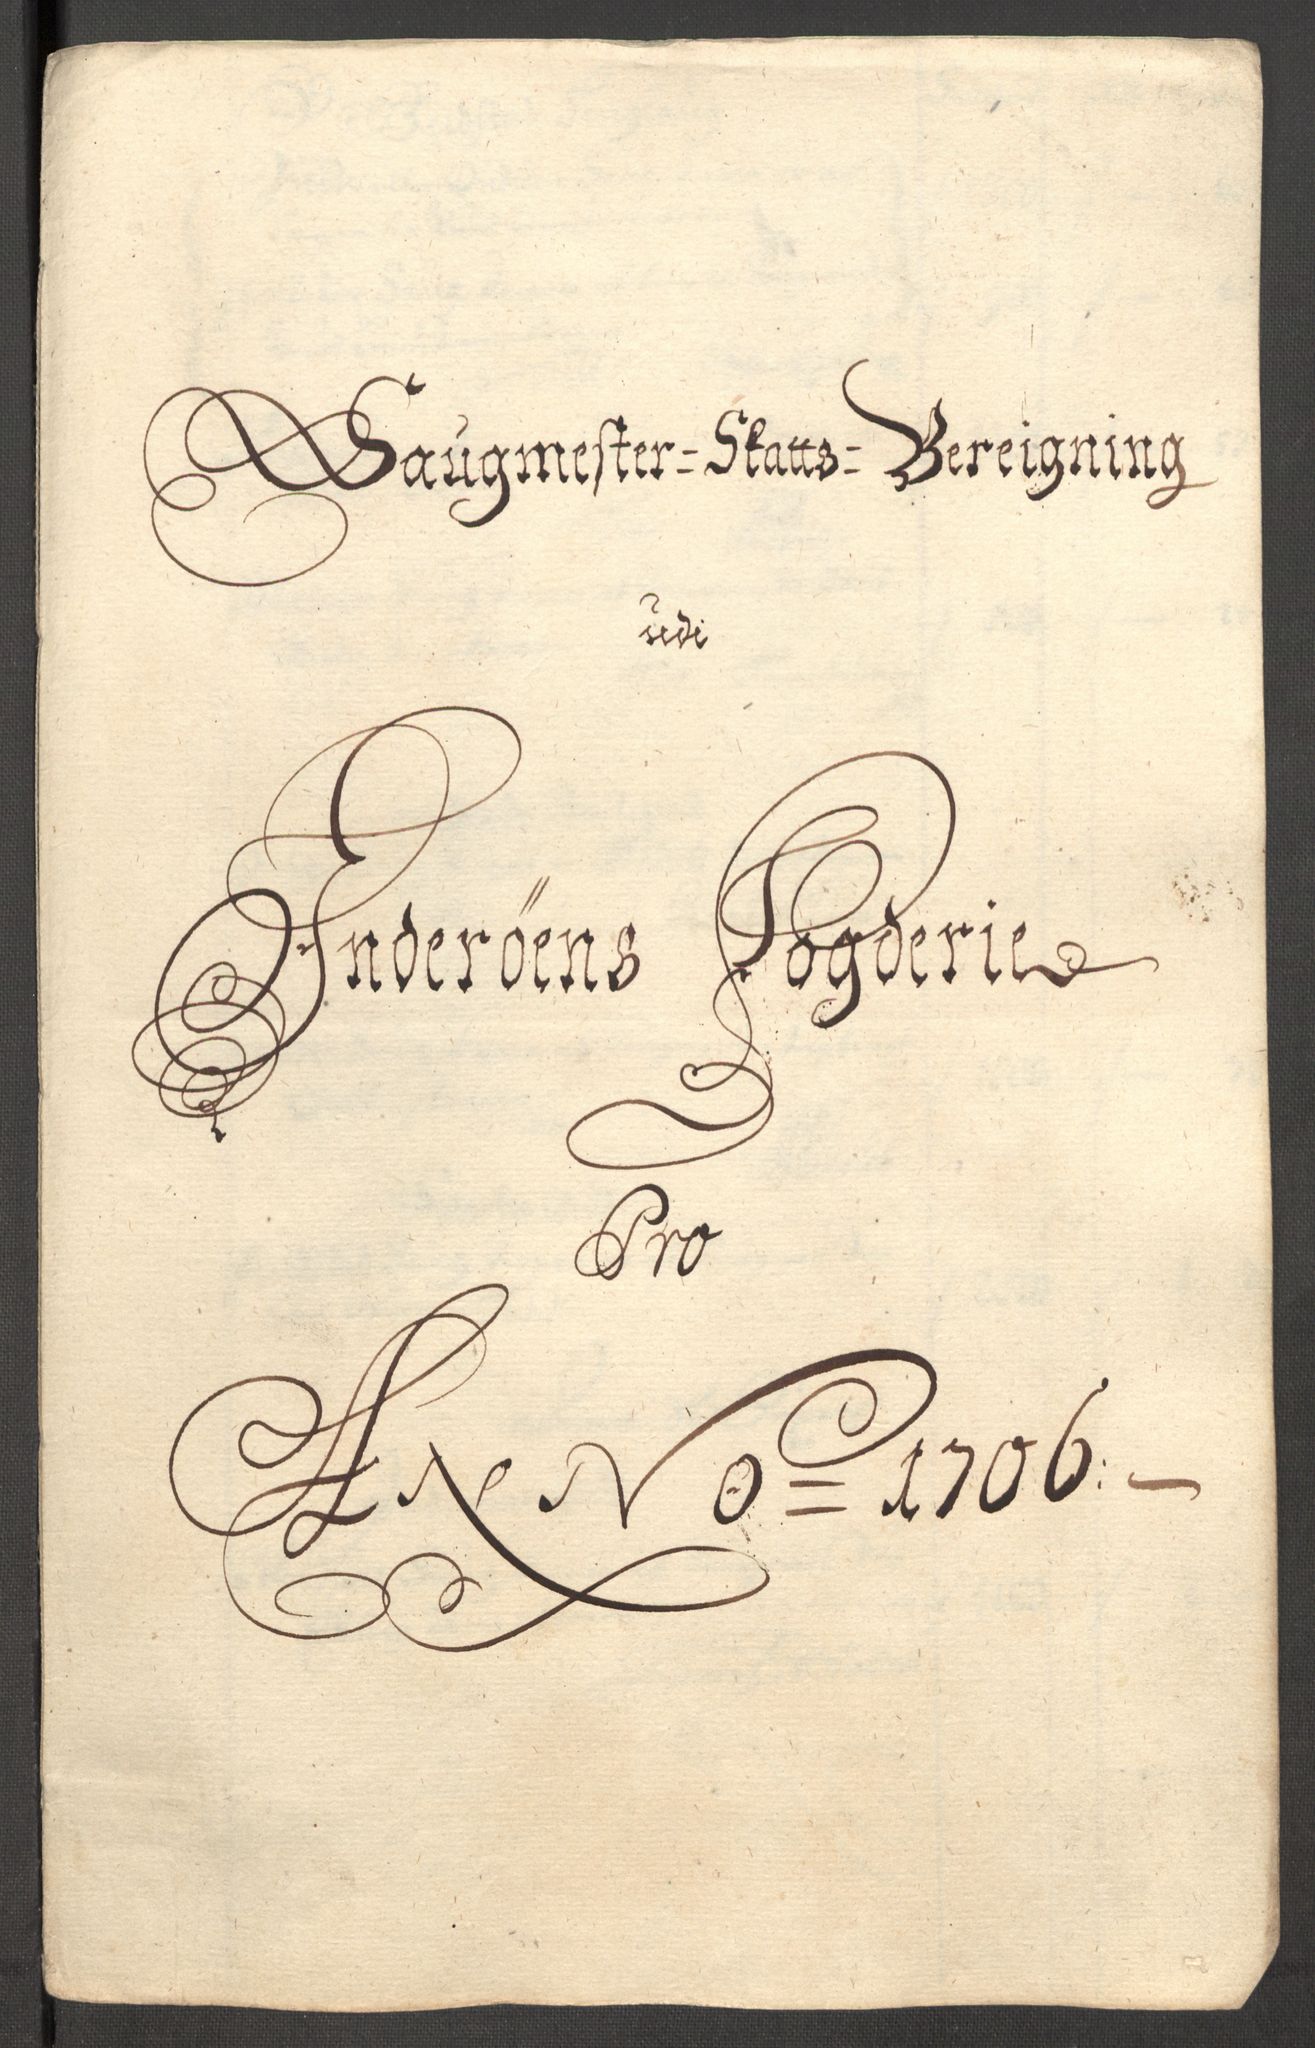 Saugmester=Skatts=Bereigning
udi
Inderöens Fogderie
Pro
ANNo=1706:—